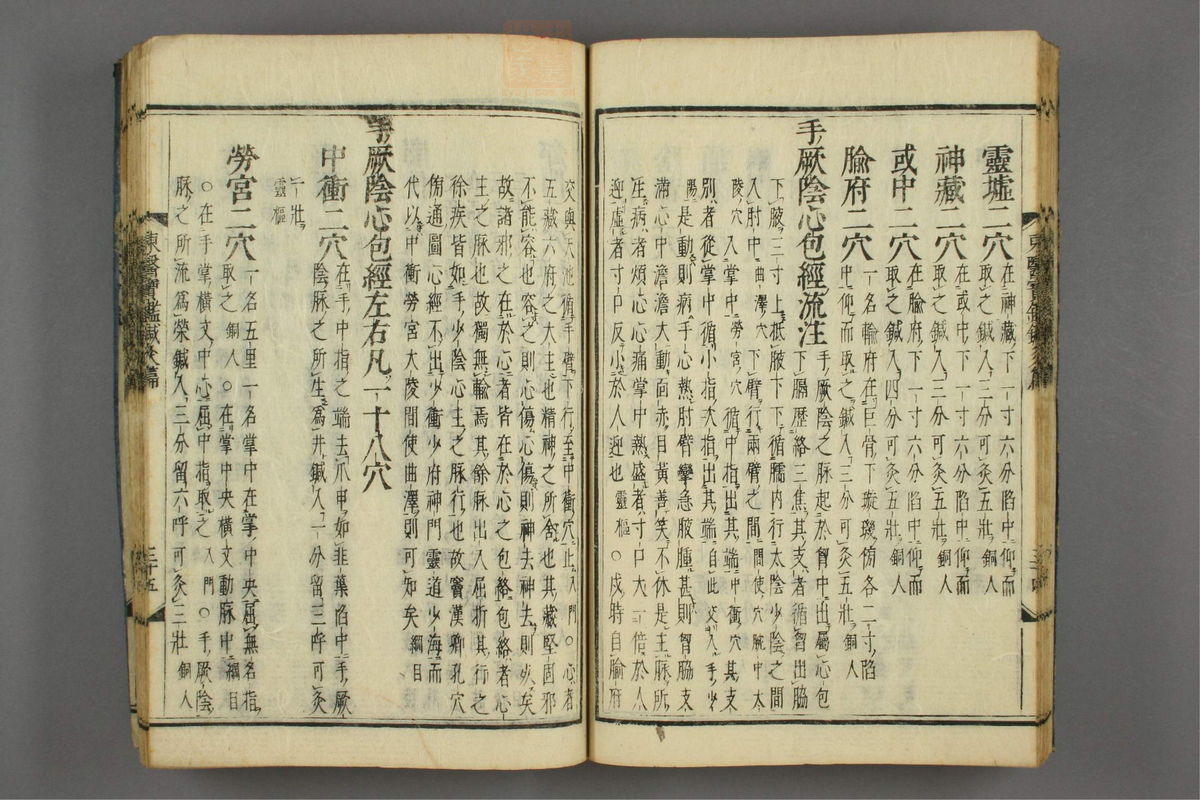 靈墟二穴在神藏下一寸六分陷中仰而
取之鍼入三分可灸五壯銅人
神藏二穴在或中下一寸六分陷中仰而
取之鍼入三分可灸五壯銅人
或中二穴在腧府下一寸六分陷中仰而
取之鍼入四分可灸五壯銅人
腧府二穴一名輸府在巨骨下璇璣傍各二寸陷
中仰而取之鍼入三分可灸五壯銅人
手厥陰心包經流注手厥陰之脉起於胷中出屬心包
下膈歷絡三焦其支者循胷出脇
下腋三寸上抵腋下下循臑內行太陰少陰之間
入肘中曲澤穴下臂行兩臂之間間使穴腕中大
陵穴入掌中勞宮穴循中指出其端中衝穴其支
別者從掌中循小指次指出其端自此交入手少
陽是動則病手心熱肘臂攣急腋腫甚則胷脇支
滿心中澹澹大動面赤目黃善笑不休是主脉所
生病者煩心心痛掌中熱盛者寸口大一倍於人
迎虛者寸口反小於人迎也靈樞○戌時自腧府
三十四
交與天池循手臂下行至中衝穴止入門○心者
五藏六府之大主也精神之所舍也其藏堅固邪
不能容也容之則心傷心傷則神去神去則死矣
故諸邪之在於心者皆在於心之包絡包絡者心
主之脉也故獨無輸焉其餘脉出入屈折其行之
徐疾皆如手少陰心主之脉行也故竇漢卿孔穴
俯通圖心經不出少衝少府神門靈道少海而
代以中衝勞宮大陵間使曲澤則可知矣綱目
手厥陰心包經左右凡一十八穴
中衝二穴在手中指之端去爪甲如韭葉陷中手厥
陰脉之所生爲井鍼入一分留三呼可灸
一壯
靈樞
勞宮二穴一名五里一名掌中在掌中央屈無名指
取之銅人○在掌中央橫文動脉中綱目
○在手掌橫文中心屈中指取之入門○手厥陰
脉之所流爲滎鍼入三分留六呼可灸三壯銅人
東醫寶鑑鍼灸篇
三十五